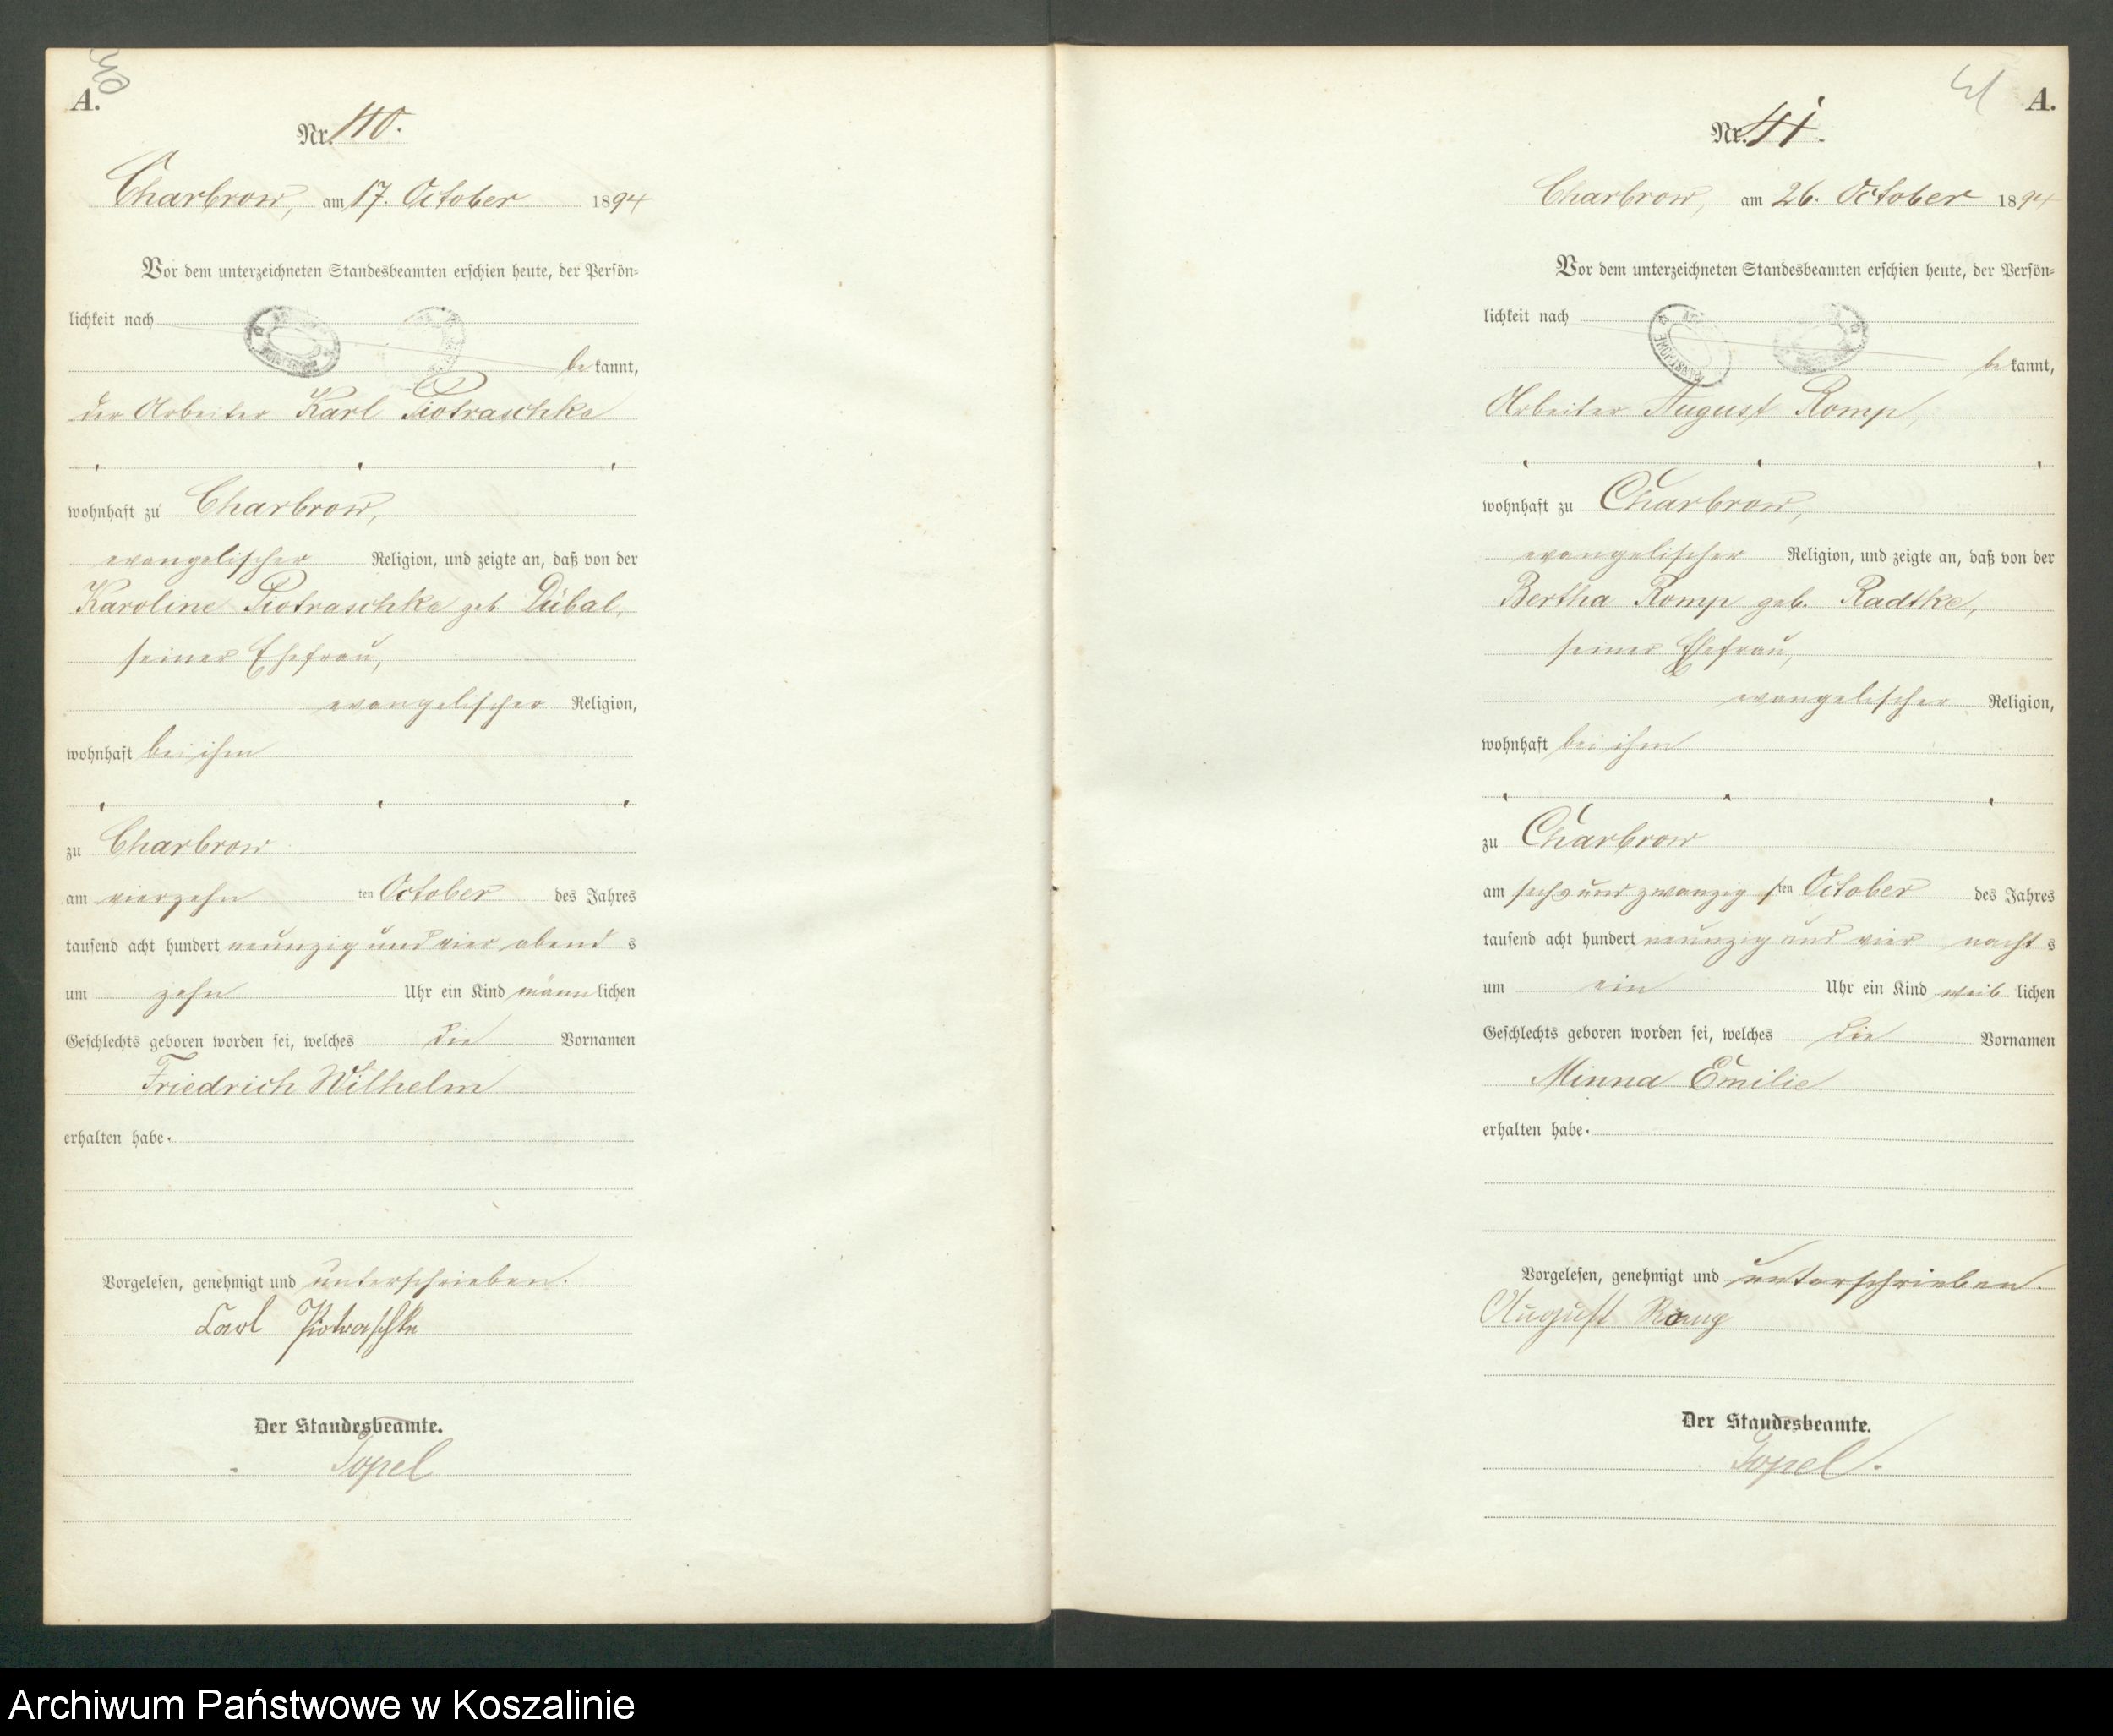 40
A.
Nr. 40.
Charbrow, am 17. October 1894
Vor dem unterzeichneten Standesbeamten erschien heute, der Persön=
lichkeit nach
be kannt,
der Arbeiter Karl Piotraschke
wohnhaft zu Charbrow,
evangelischer Religion, und zeigte an, daß von der
Karoline Piotraschke geb. Dübal,
seiner Ehefrau,
evangelischer Religion,
wohnhaft bei ihm
zu Charbrow
am vierzehn ten October des Jahres
tausend acht hundert neunzig und vier abend s
um zehn Uhr ein Kind männ lichen
Geschlechts geboren worden sei, welches die Vornamen
Friedrich Wilhelm
erhalten habe.
Vorgelesen, genehmigt und unterschrieben.
Carl Piotraschke
Der Standesbeamte.
Topel
41
A.
Nr. 41.
Charbrow, am 26. October 1894
Vor dem unterzeichneten Standesbeamten erschien heute, der Persön=
lichkeit nach
be kannt,
Arbeiter August Romp,
wohnhaft zu Charbrow,
evangelischer Religion, und zeigte an, daß von der
Bertha Romp geb. Radtke,
seiner Ehefrau,
evangelischer Religion,
wohnhaft bei ihm
zu Charbrow
am sechs und zwanzig s ten October des Jahres
tausend acht hundert neunzig und vier nacht s
um ein Uhr ein Kind weib lichen
Geschlechts geboren worden sei, welches die Vornamen
Minna Emilie
erhalten habe.
Vorgelesen, genehmigt und unterschrieben.
August
Der Standesbeamte.
Topel.
Archiwum Państwowe w Koszalinie